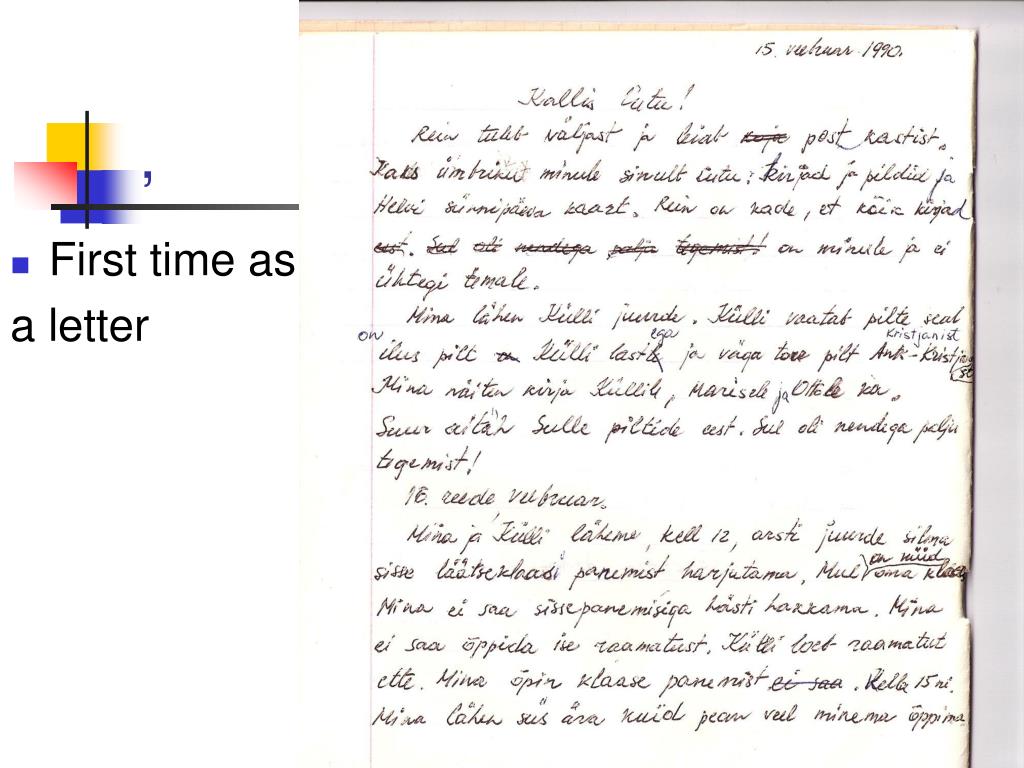 ,
First time as
a letter
15. veebruar 1990.
Kallis Ütu!
Rein tuleb väljast ja leiab koja post kastist.
Kaks ümbrikut minule sinult Üutu: kirjad ja pildid ja
Helvi sünnipäeva kaart. Rein on kade, et kõik kirjad
eest. Sul oli nendega palju tegemist! on minule ja ei
ühtegi temale.
Mina lähen Külli juurde. Külli vaatab pilte seal
on ega kristjanist
ilus pilt on Külli lastk ja väga tore pilt Ank-Kristjan
st
Mina näiten kirjaKüllile, Marisele ja Ottole ka.
Suur aitäh Sulle piltide eest. Sul oli nendega palju
tegemist!
16. reede, veebruar.
Mina ja Külli läheme, kell 12, arsti juurde silma
on nüüd
sisse läätseklaasi panemist harjutama, Mul oma klaas
Mina ei saa sissepanemisega hästi hakkama. Mina
ei saa õppida ise raamatust. Külli loeb raamatut
ette. Mina õpin klaase panemist ei saa. Kella 15ni.
Mina lähen siis ära kuid pean veel minema õppima